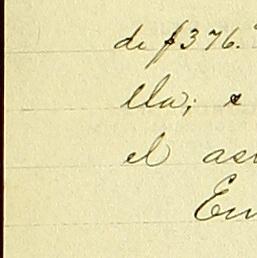 de $376.
lla; e
el asu
En